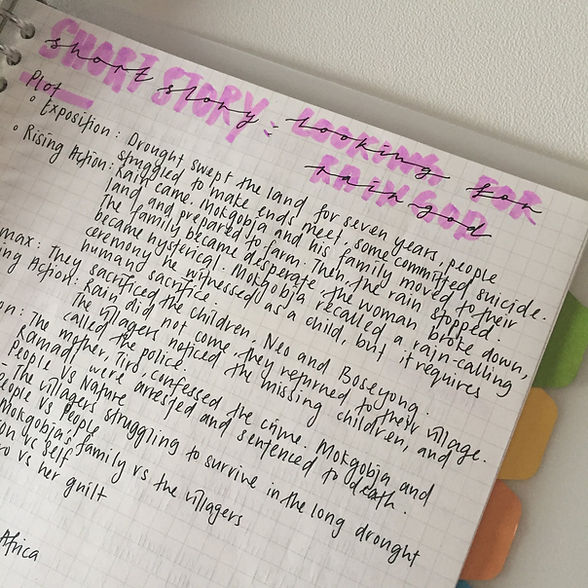 SHORT STORY: LOOKING FOR RAIN GOD
short story : looking for
rain god
Plot
Exposition: Drought swept the land for seven years, people
struggled to make ends meet, some committed suicide.
Rising Action: Rain came. Mokgobja and his family moved to their
land and prepared to farm. Then, the rain stopped.
The family became desperate, the woman broke down,
became hysterical. Mokgobja recalled a rain-calling
ceremony he witnessed as a child, but it requires
human sacrifice.
max: They sacrificed the children, Neo and Boseyong.
ing Action: Rain did not come, they returned to their village.
The villagers noticed the missing children, and
called the police.
on: The mother, Tiro, confessed the crime. Mokgobja and
Ramadi were arrested and sentenced to death.
People vs Nature
The villagers struggling to survive in the long drought
eople vs People
Mokgobja's family vs the villagers
on vs self
ro vs her guilt
Africa